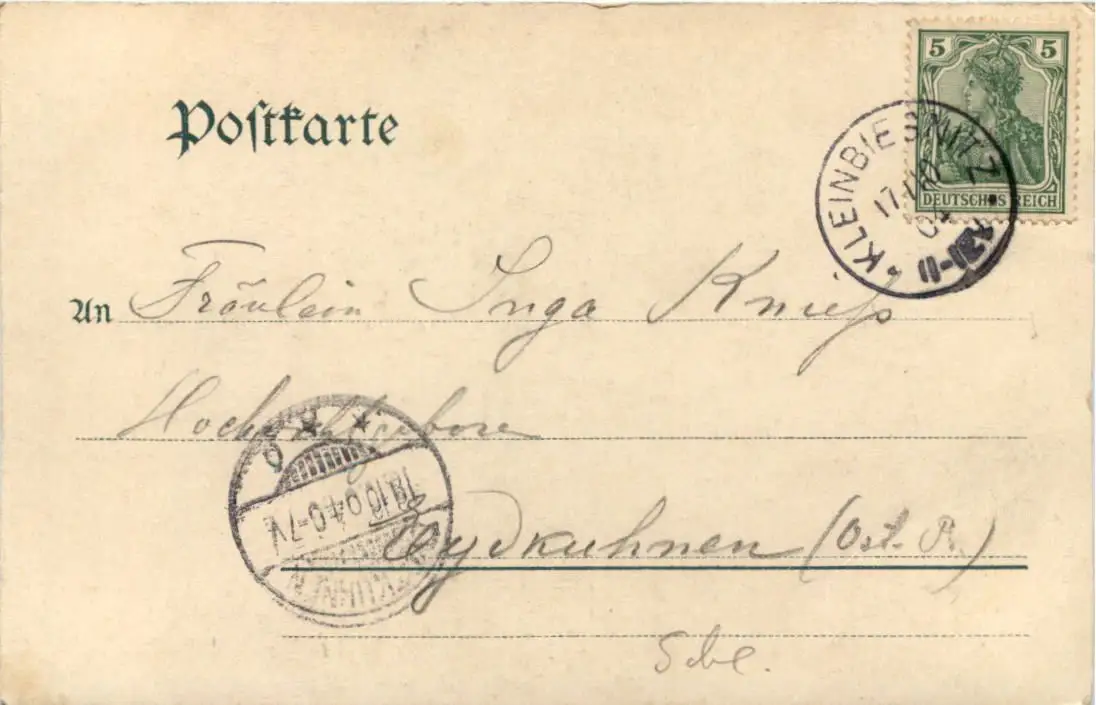 Postkarte
5 5
DEUTSCHES REICH
KLEINBIESNITZ
17.10
04
11-12
An Fräulein Inga Knieß
Hochwohlgeboren
18.10.04. 6-7V.
Eydkuhnen (Ost. Pr.)